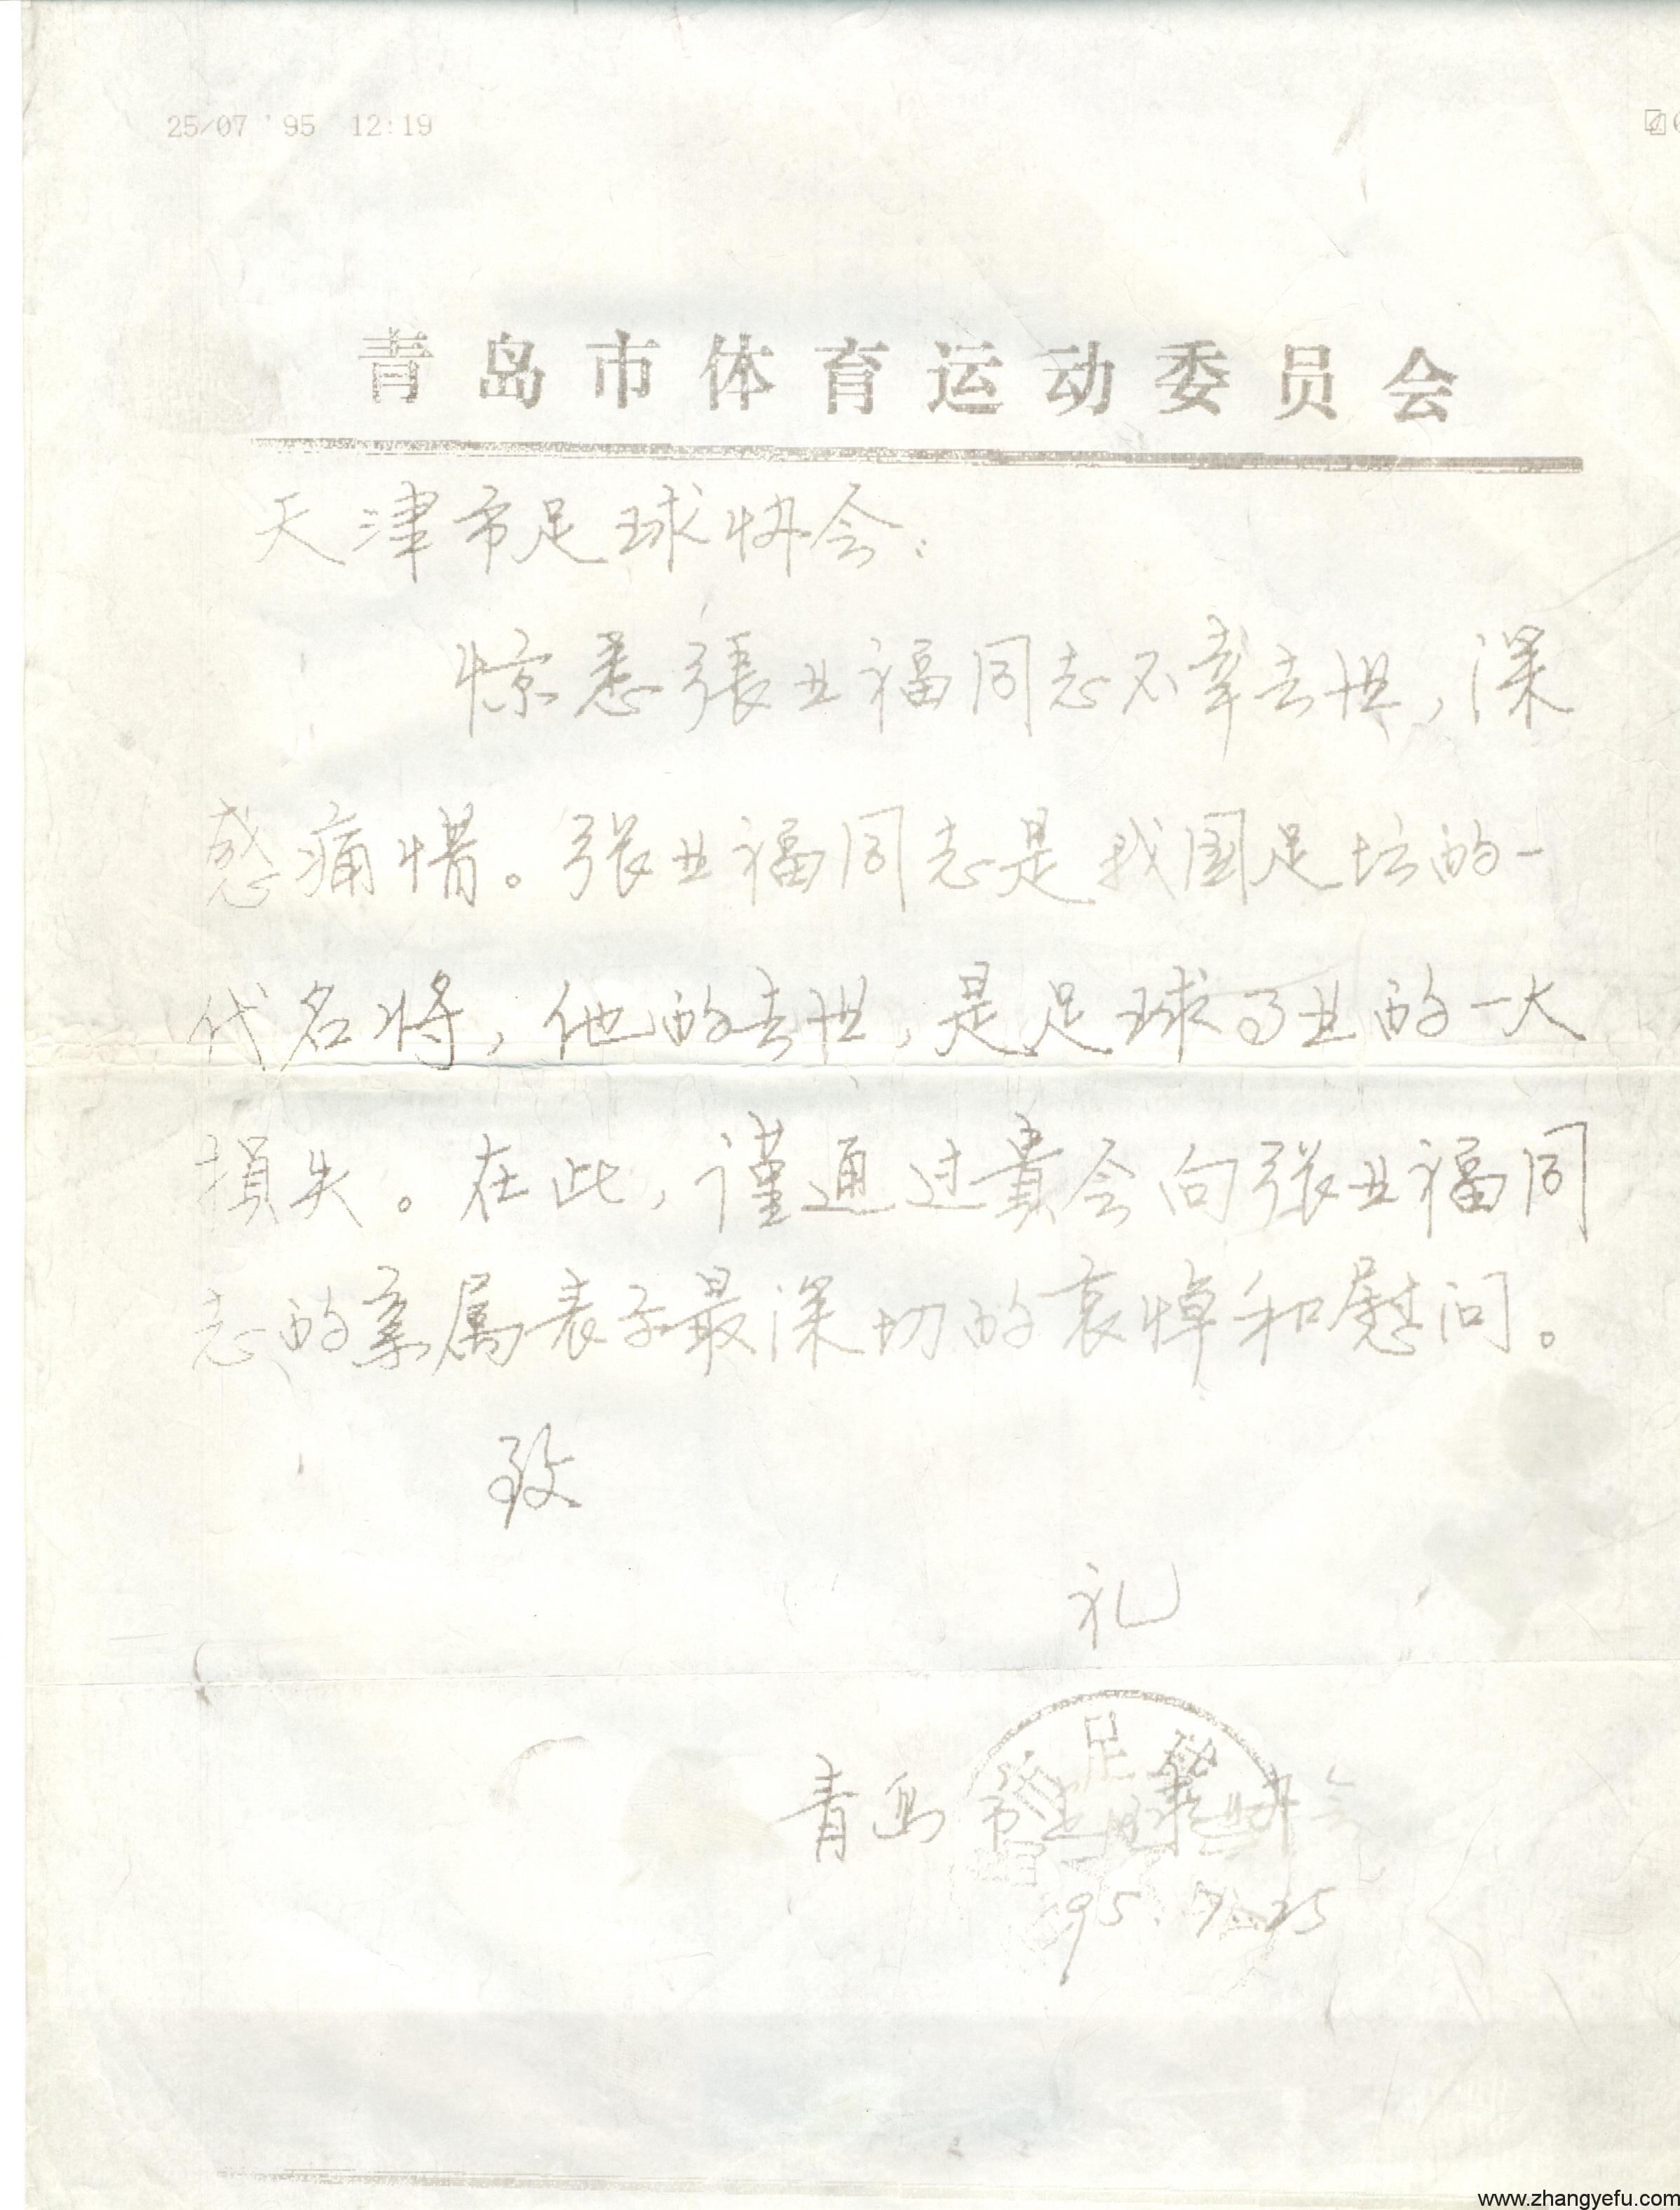 25/07 '95 12:19
青岛市体育运动委员会
天津市足球协会：
惊悉張业福同志不幸去世，深
感痛惜。張业福同志是我国足坛的一
代名将，他的去世，是足球事业的一大
損失。在此，谨通过貴会向張业福同
志的亲属表示最深切的哀悼和慰问。
致
礼
青岛市足球协会
95.7.25
www.zhangyefu.com